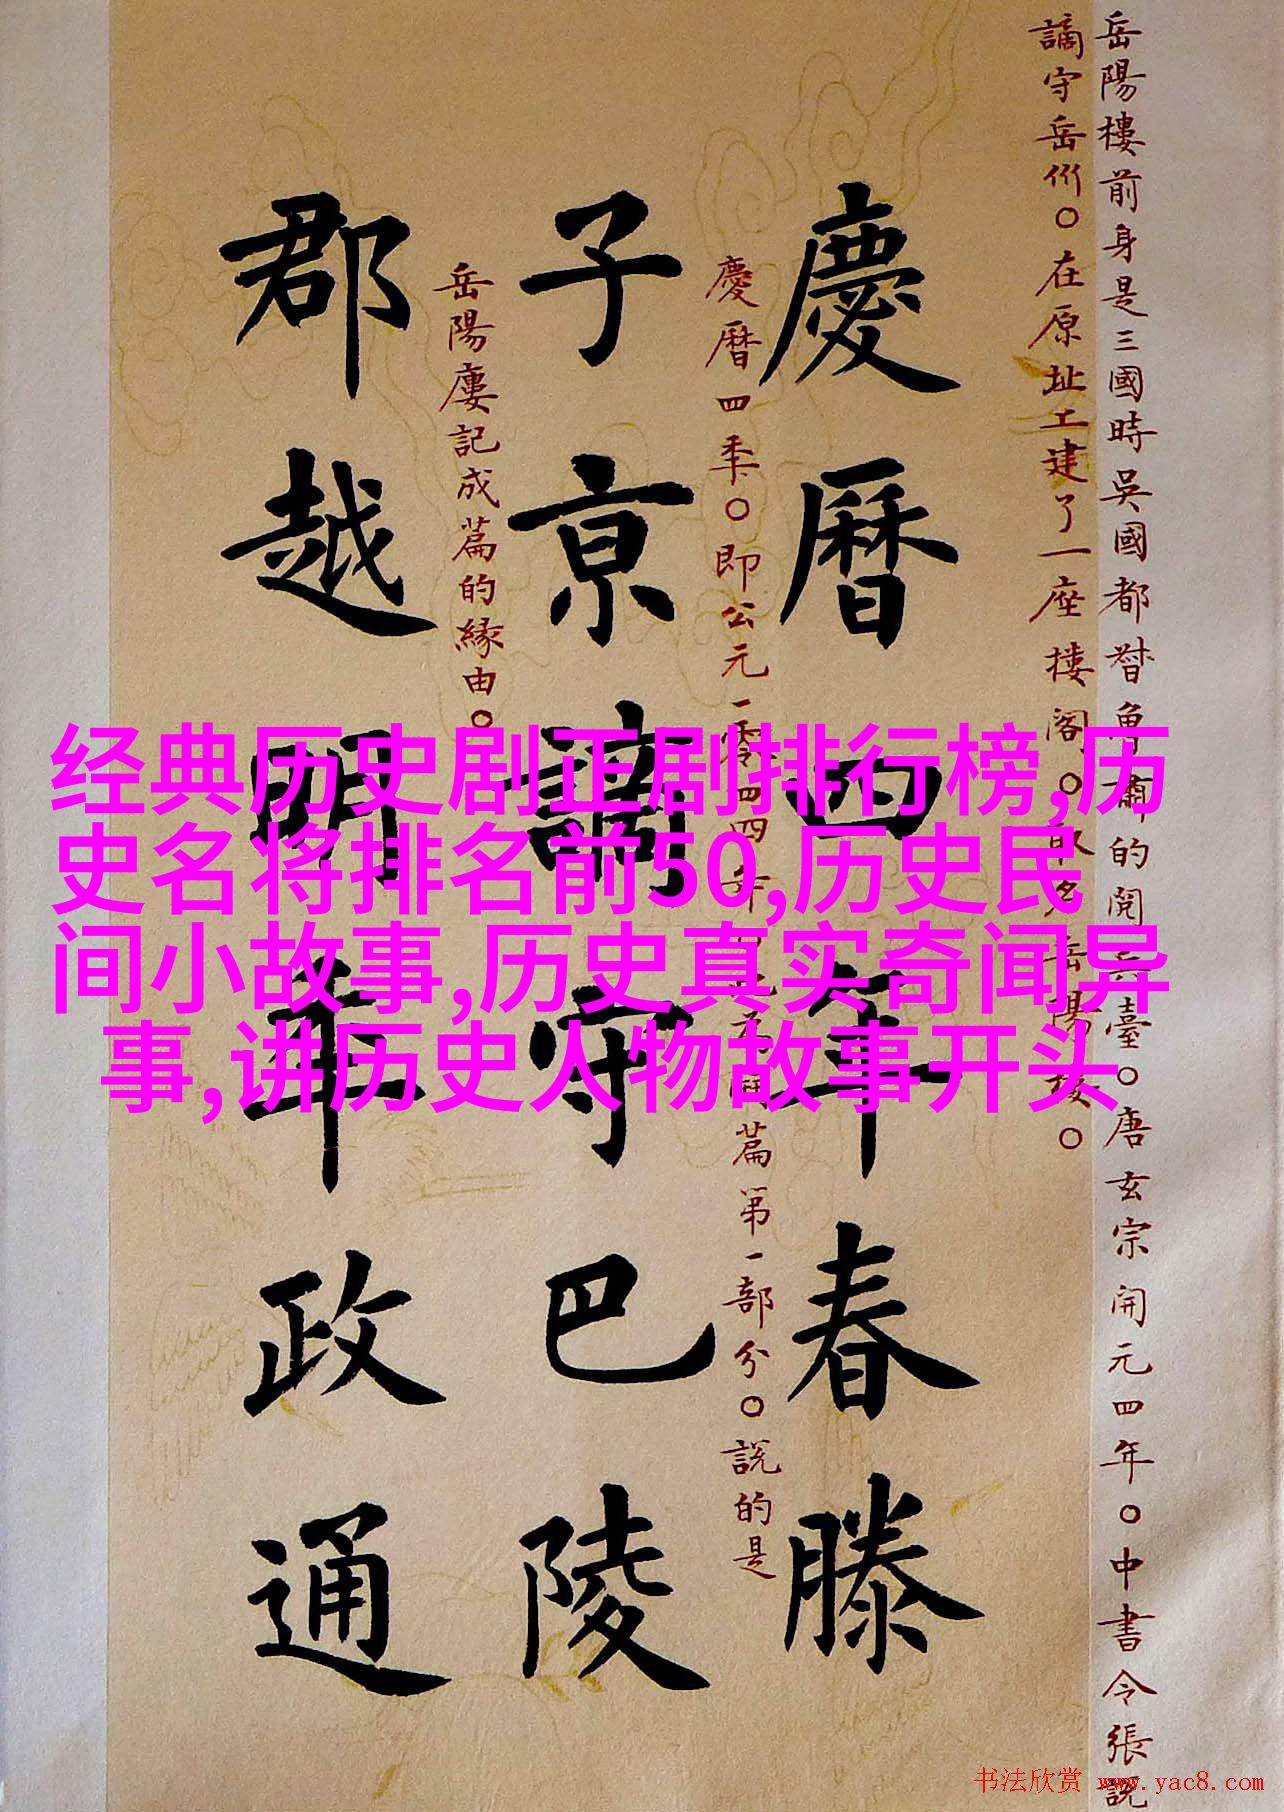 岳陽樓前身是三國時吳國都督魯肅的閱兵臺○唐玄宗開元四年○中書令張説
謫守岳州○在原址工建了一座樓閣○取名岳陽樓○
慶暦四年春滕
慶暦四年○即公元一零四四年 篇第一部分○説的是
子京謫守巴陵
岳陽樓記成篇的緣由○
郡越明年政通
经典历史剧正剧排行榜,历
史名将排名前50,历史民
间小故事,历史真实奇闻异
事,讲历史人物故事开头
书法欣赏 www.yac8.com